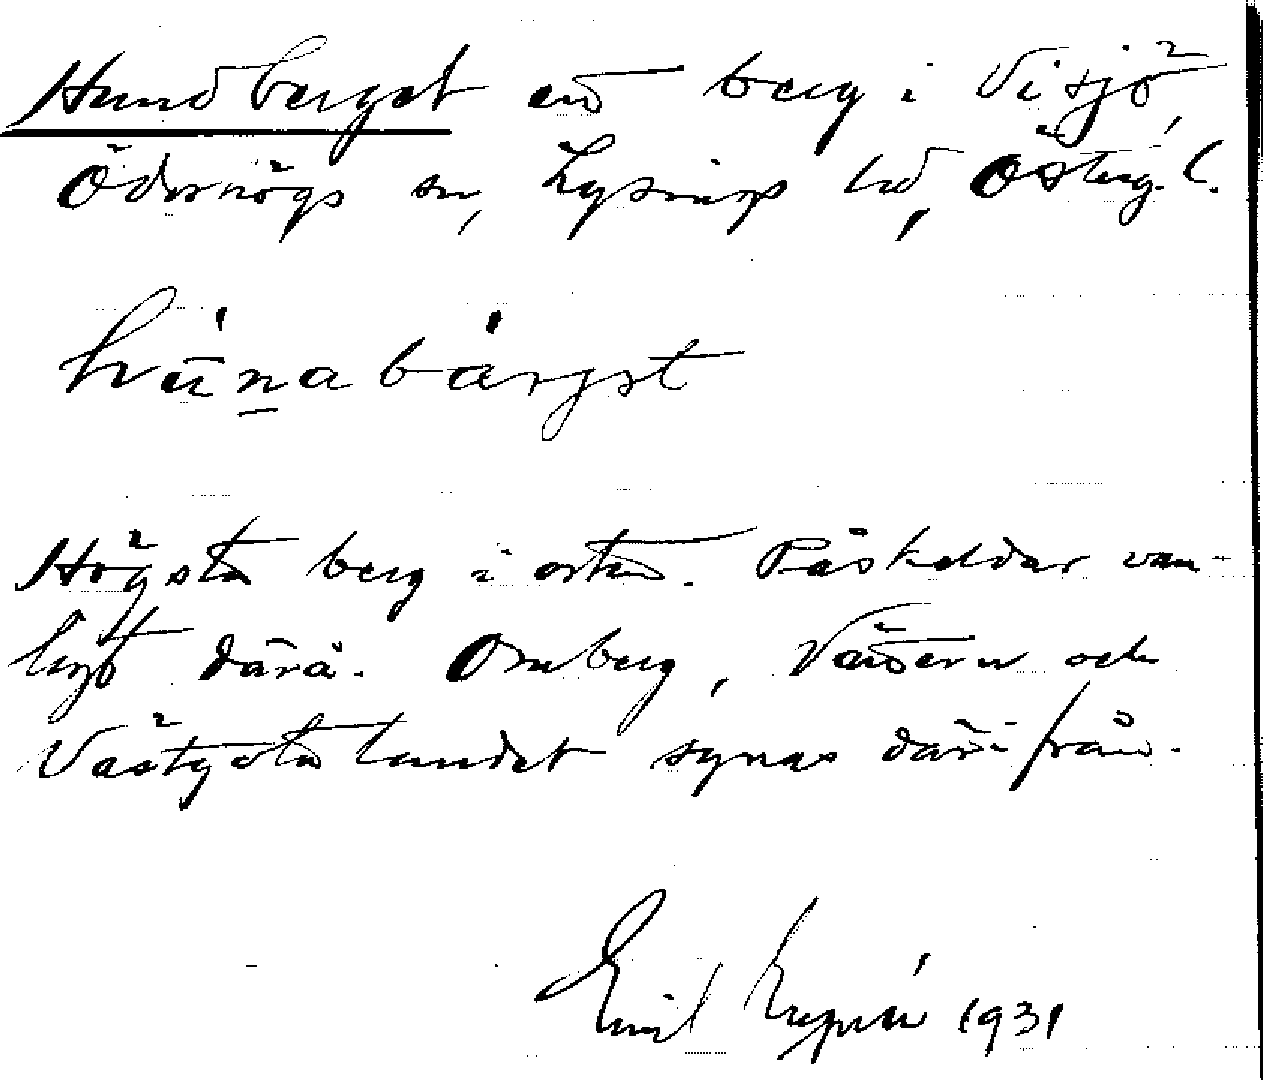 Hundberget ett berg i Visjö,
Ödeshögs sn, Lysings hd, Österg. l.
hu̇nabȧrgət
Högsta berg i orten. Påskeldar van-
ligt därå. Omberg, Vättern och
Västgötalandet synas därifrån.
Emil 1931